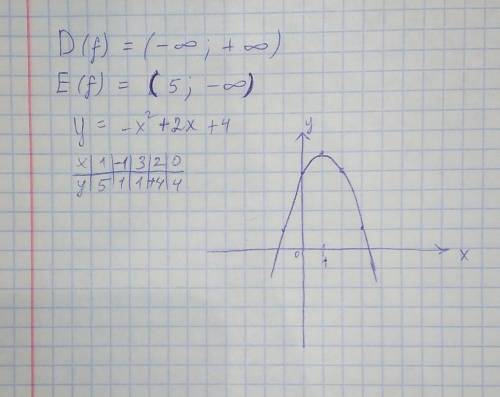 D(f) = (-∞; +∞)
E(f) = (5; -∞)
y = -x²+2x+4
x | 1 | -1 | 3 | 2 | 0
y | 5 | 1 | 1 | +4 | 4
y
0 1 x